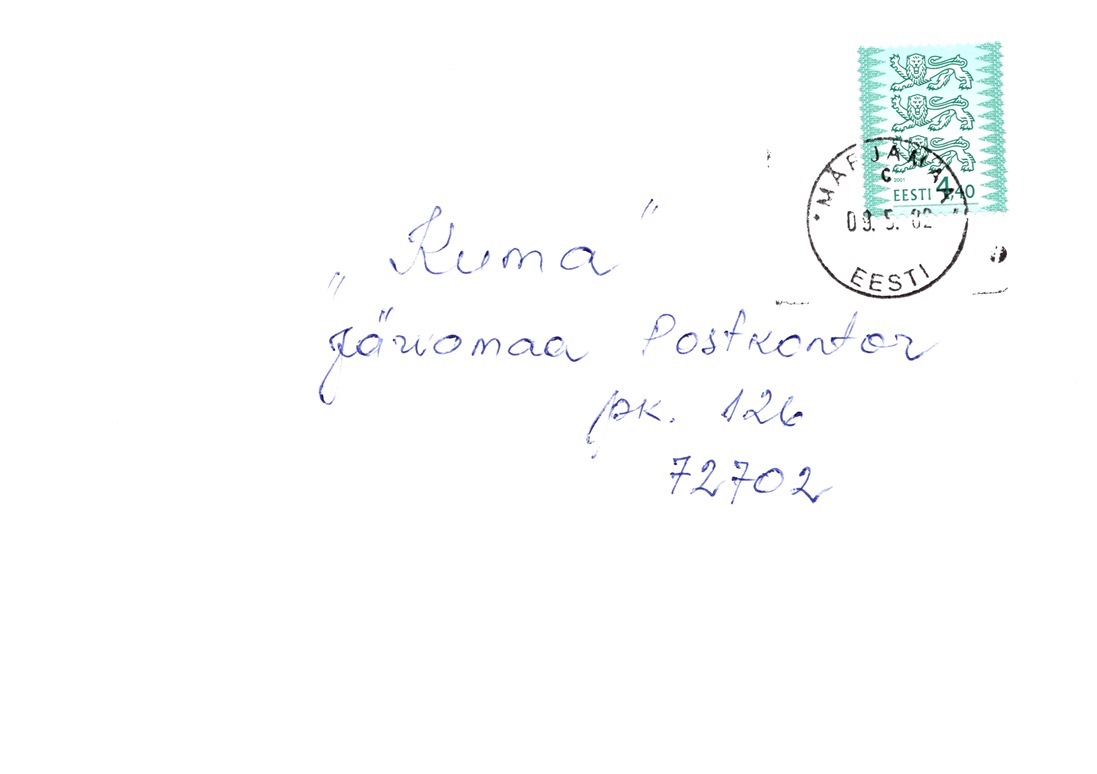 2001
EESTI 4.40
MÄRJAMAA
C
09. 5. 02
EESTI
„Kuma"
Järvamaa Postkontor
pk. 126
72702